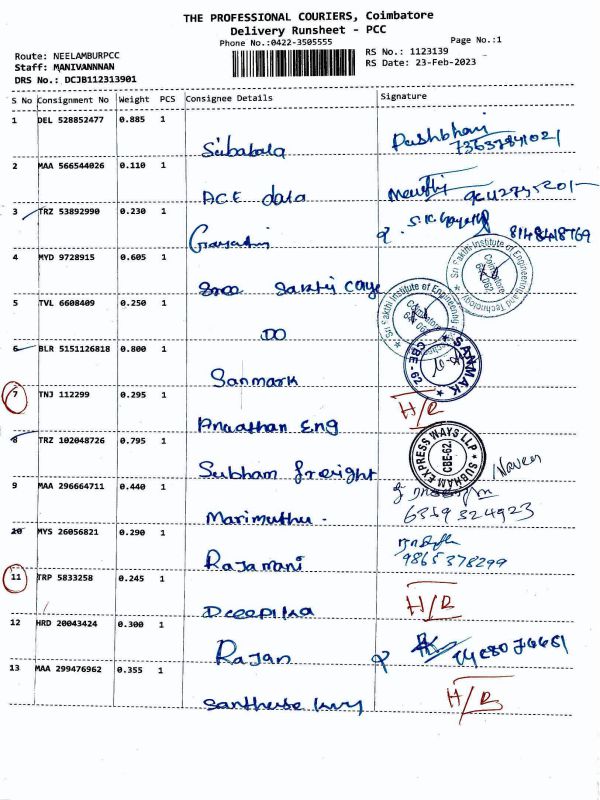 THE PROFESSIONAL COURIERS, Coimbatore
Delivery Runsheet - PCC
Phone No.:0422-3505555
Page No.:1
Route: NEELAMBURPCC
Staff: MANIVANNNAN
DRS No.: DCJB112313901
RS No.: 1123139
RS Date: 23-Feb-2023
S No Consignment No Weight PCS Consignee Details Signature
1 DEL 528852477 0.885 1
Subabala
2 MAA 566544026 0.110 1
ACE data
3 TRZ 53892990 0.230 1
Gayathri 8148418769
4 MYD 9728915 0.605 1
Sree Sakthi
Sri Sakthi Institute of Engineering and Technology
Coimbatore
641 062
5 TVL 6608409 0.250 1
DO
Sri Sakthi Institute of Engineering
Coimbatore
641 062
6 BLR 5151126818 0.800 1
Sanmark
SANMAK
CBE-62
7 TNJ 112299 0.295 1
H/R
Eng
8 TRZ 102048726 0.795 1
Subham freight
SUBHAM EXPRESS WAYS LLP
CBE-62
Naveen
9 MAA 296664711 0.440 1
Marimuthu. 6359324923
10 MYS 26056821 0.290 1
Rajamani 9865378299
11 TRP 5833258 0.245 1
Deepika H/R
12 HRD 20043424 0.300 1
Rajan
13 MAA 299476962 0.355 1
H/R